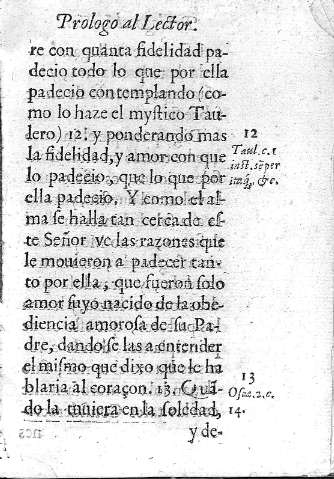 Prologo al Lector.
re con quanta fidelidad pa-
decio todo lo que por ella
padecio contemplando (co-
mo lo haze el mystico Tau-
lero) 12. y ponderando mas
la fidelidad, y amor con que
lo padecio, que lo que por
ella padecio. Y como el al-
ma se halla tan cerca de es-
te Señor ve las razones que
le mouieron a padecer tan-
to por ella, que fueron solo
amor suyo nacido de la obe-
diencia amorosa de su Pa-
dre, dando se las a entender
el mismo que dixo que le ha
blaria al coraçon. 13. Quã-
do la tuuiera en la soledad,
y de-
12
Taul. c. 1
inst. sẽper
&c.
13
Osee. 2. c.
14.